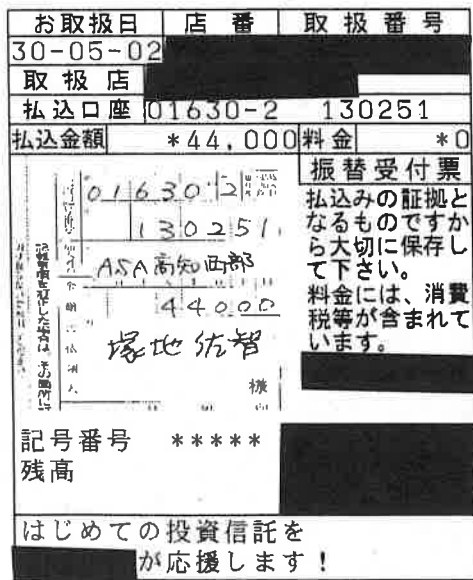 お取扱日 店番 取扱番号
30-05-02
取扱店
払込口座 01630-2 130251
払込金額 *44,000 料金 *0
振替受付票
払込みの証拠と
なるものですか
ら大切に保存し
て下さい。
料金には、消費
税等が含まれて
います。
01630 2
130251
ASA高知西部
44000
塚地佐智
様
記号番号 *****
残高
はじめての投資信託を
が応援します!